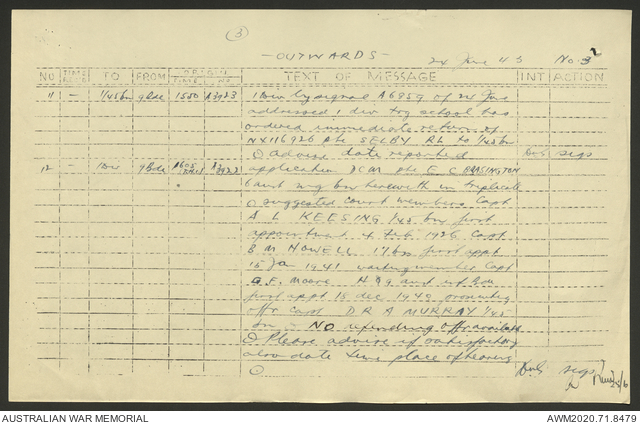 (3)
- OUTWARDS - 24 June 43 No 3
NO TIME TO FROM ORIGIN TIME NO. TEXT OF MESSAGE INT ACTION
11 - 1/45 bn 9 Bde 1500 A3923 1 Div by signal A6959 of 24 June
addressed 1 div trg school has
ordered immediate return of
NX116926 pte SELBY RL to 1/45 bn
advise date reported Dvls sigs
12 - 1 Div 9 Bde A3922 application DCM pte E C BRASINGTON
6 aust mg bn herewith in triplicate
suggested court members Capt
A L KEESING 1/45 bn first
appointment 4 Feb 1936 Capt
B M HOWELL 17 bn first appt
15 Ja 1941 waiting member Capt
G.F. Moore HQ 9 aust inf Bde
first appt 15 dec 1940 prosecuting
offr Capt DR A MURRAY 1/45
bn - NO defending offr available
Please advise if satisfactory
allow date time place of hearing
Dvls sigs
AUSTRALIAN WAR MEMORIAL AWM2020.71.8479